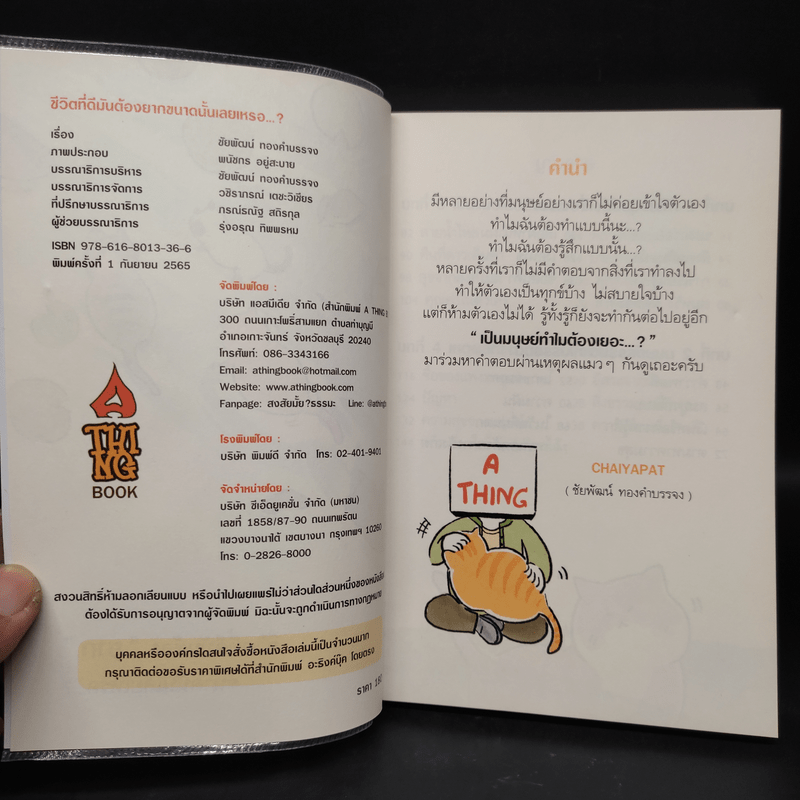 ชีวิตที่ดีมันต้องยากขนาดนั้นเลยเหรอ...?
เรื่อง ชัยพัฒน์ ทองคำบรรจง
ภาพประกอบ พนัชกร อยู่สะบาย
บรรณาธิการบริหาร ชัยพัฒน์ ทองคำบรรจง
บรรณาธิการจัดการ วชิราภรณ์ เตชะวิเชียร
ที่ปรึกษาบรรณาธิการ ภรณ์รณัฐ สถิรกุล
ผู้ช่วยบรรณาธิการ รุ่งอรุณ ทิพพรหม
ISBN 978-616-8013-36-6
พิมพ์ครั้งที่ 1 กันยายน 2565
จัดพิมพ์โดย :
บริษัท แอสมีเดีย จำกัด (สำนักพิมพ์ A THING
300 ถนนเกาะโพธิ์สามแยก ตำบลท่าบุญมี
อำเภอเกาะจันทร์ จังหวัดชลบุรี 20240
โทรศัพท์: 086-3343166
Email: athingbook@hotmail.com
Website: www.athingbook.com
Fanpage: สงสัยมั้ย?ธรรมะ Line:
A
THI
NG
BOOK
โรงพิมพ์โดย :
บริษัท พิมพ์ดี จำกัด โทร: 02-401-9401
จัดจำหน่ายโดย :
บริษัท ซีเอ็ดยูเคชั่น จำกัด (มหาชน)
เลขที่ 1858/87-90 ถนนเทพรัตน
แขวงบางนาใต้ เขตบางนา กรุงเทพฯ 10260
โทร: 0-2826-8000
สงวนสิทธิ์ห้ามลอกเลียนแบบ หรือนำไปเผยแพร่ไม่ว่าส่วนใดส่วนหนึ่งของหนังสือ
ต้องได้รับการอนุญาตจากผู้จัดพิมพ์ มิฉะนั้นจะถูกดำเนินการทางกฎหมาย
บุคคลหรือองค์กรใดสนใจสั่งซื้อหนังสือเล่มนี้เป็นจำนวนมาก
กรุณาติดต่อขอรับราคาพิเศษได้ที่สำนักพิมพ์ อะธิงค์บุ๊ค โดยตรง
ราคา
คำนำ
มีหลายอย่างที่มนุษย์อย่างเราก็ไม่ค่อยเข้าใจตัวเอง
ทำไมฉันต้องทำแบบนี้นะ...?
ทำไมฉันต้องรู้สึกแบบนั้น...?
หลายครั้งที่เราก็ไม่มีคำตอบจากสิ่งที่เราทำลงไป
ทำให้ตัวเองเป็นทุกข์บ้าง ไม่สบายใจบ้าง
แต่ก็ห้ามตัวเองไม่ได้ รู้ทั้งรู้ก็ยังจะทำกันต่อไปอยู่อีก
“ เป็นมนุษย์ทำไมต้องเยอะ...? ”
มาร่วมหาคำตอบผ่านเหตุผลแมว ๆ กันดูเถอะครับ
CHAIYAPAT
( ชัยพัฒน์ ทองคำบรรจง )
A
THING